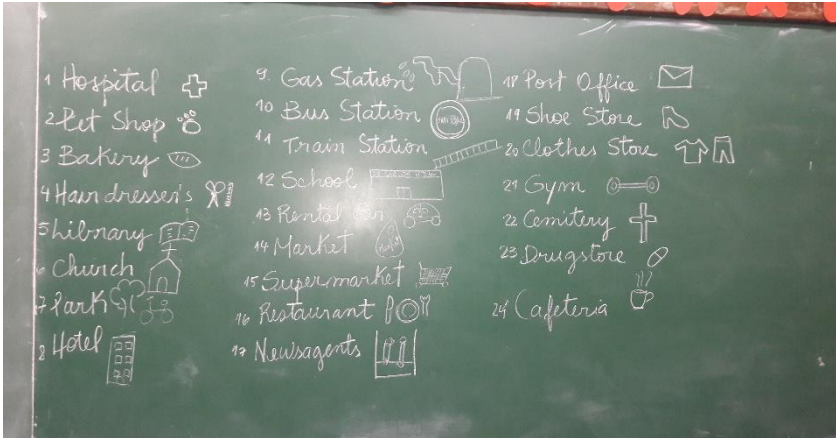 1 Hospital
2 Pet Shop
3 Bakery
4 Hairdresser's
5 Library
6 Church
7 Park
8 Hotel
9. Gas Station
10 Bus Station
11 Train Station
12 School
13 Rental Car
14 Market
15 Supermarket
16 Restaurant
17 Newsagents
18 Post Office
19 Shoe Store
20 Clothes Store
21 Gym
22 Cemitery
23 Drugstore
24 Cafeteria